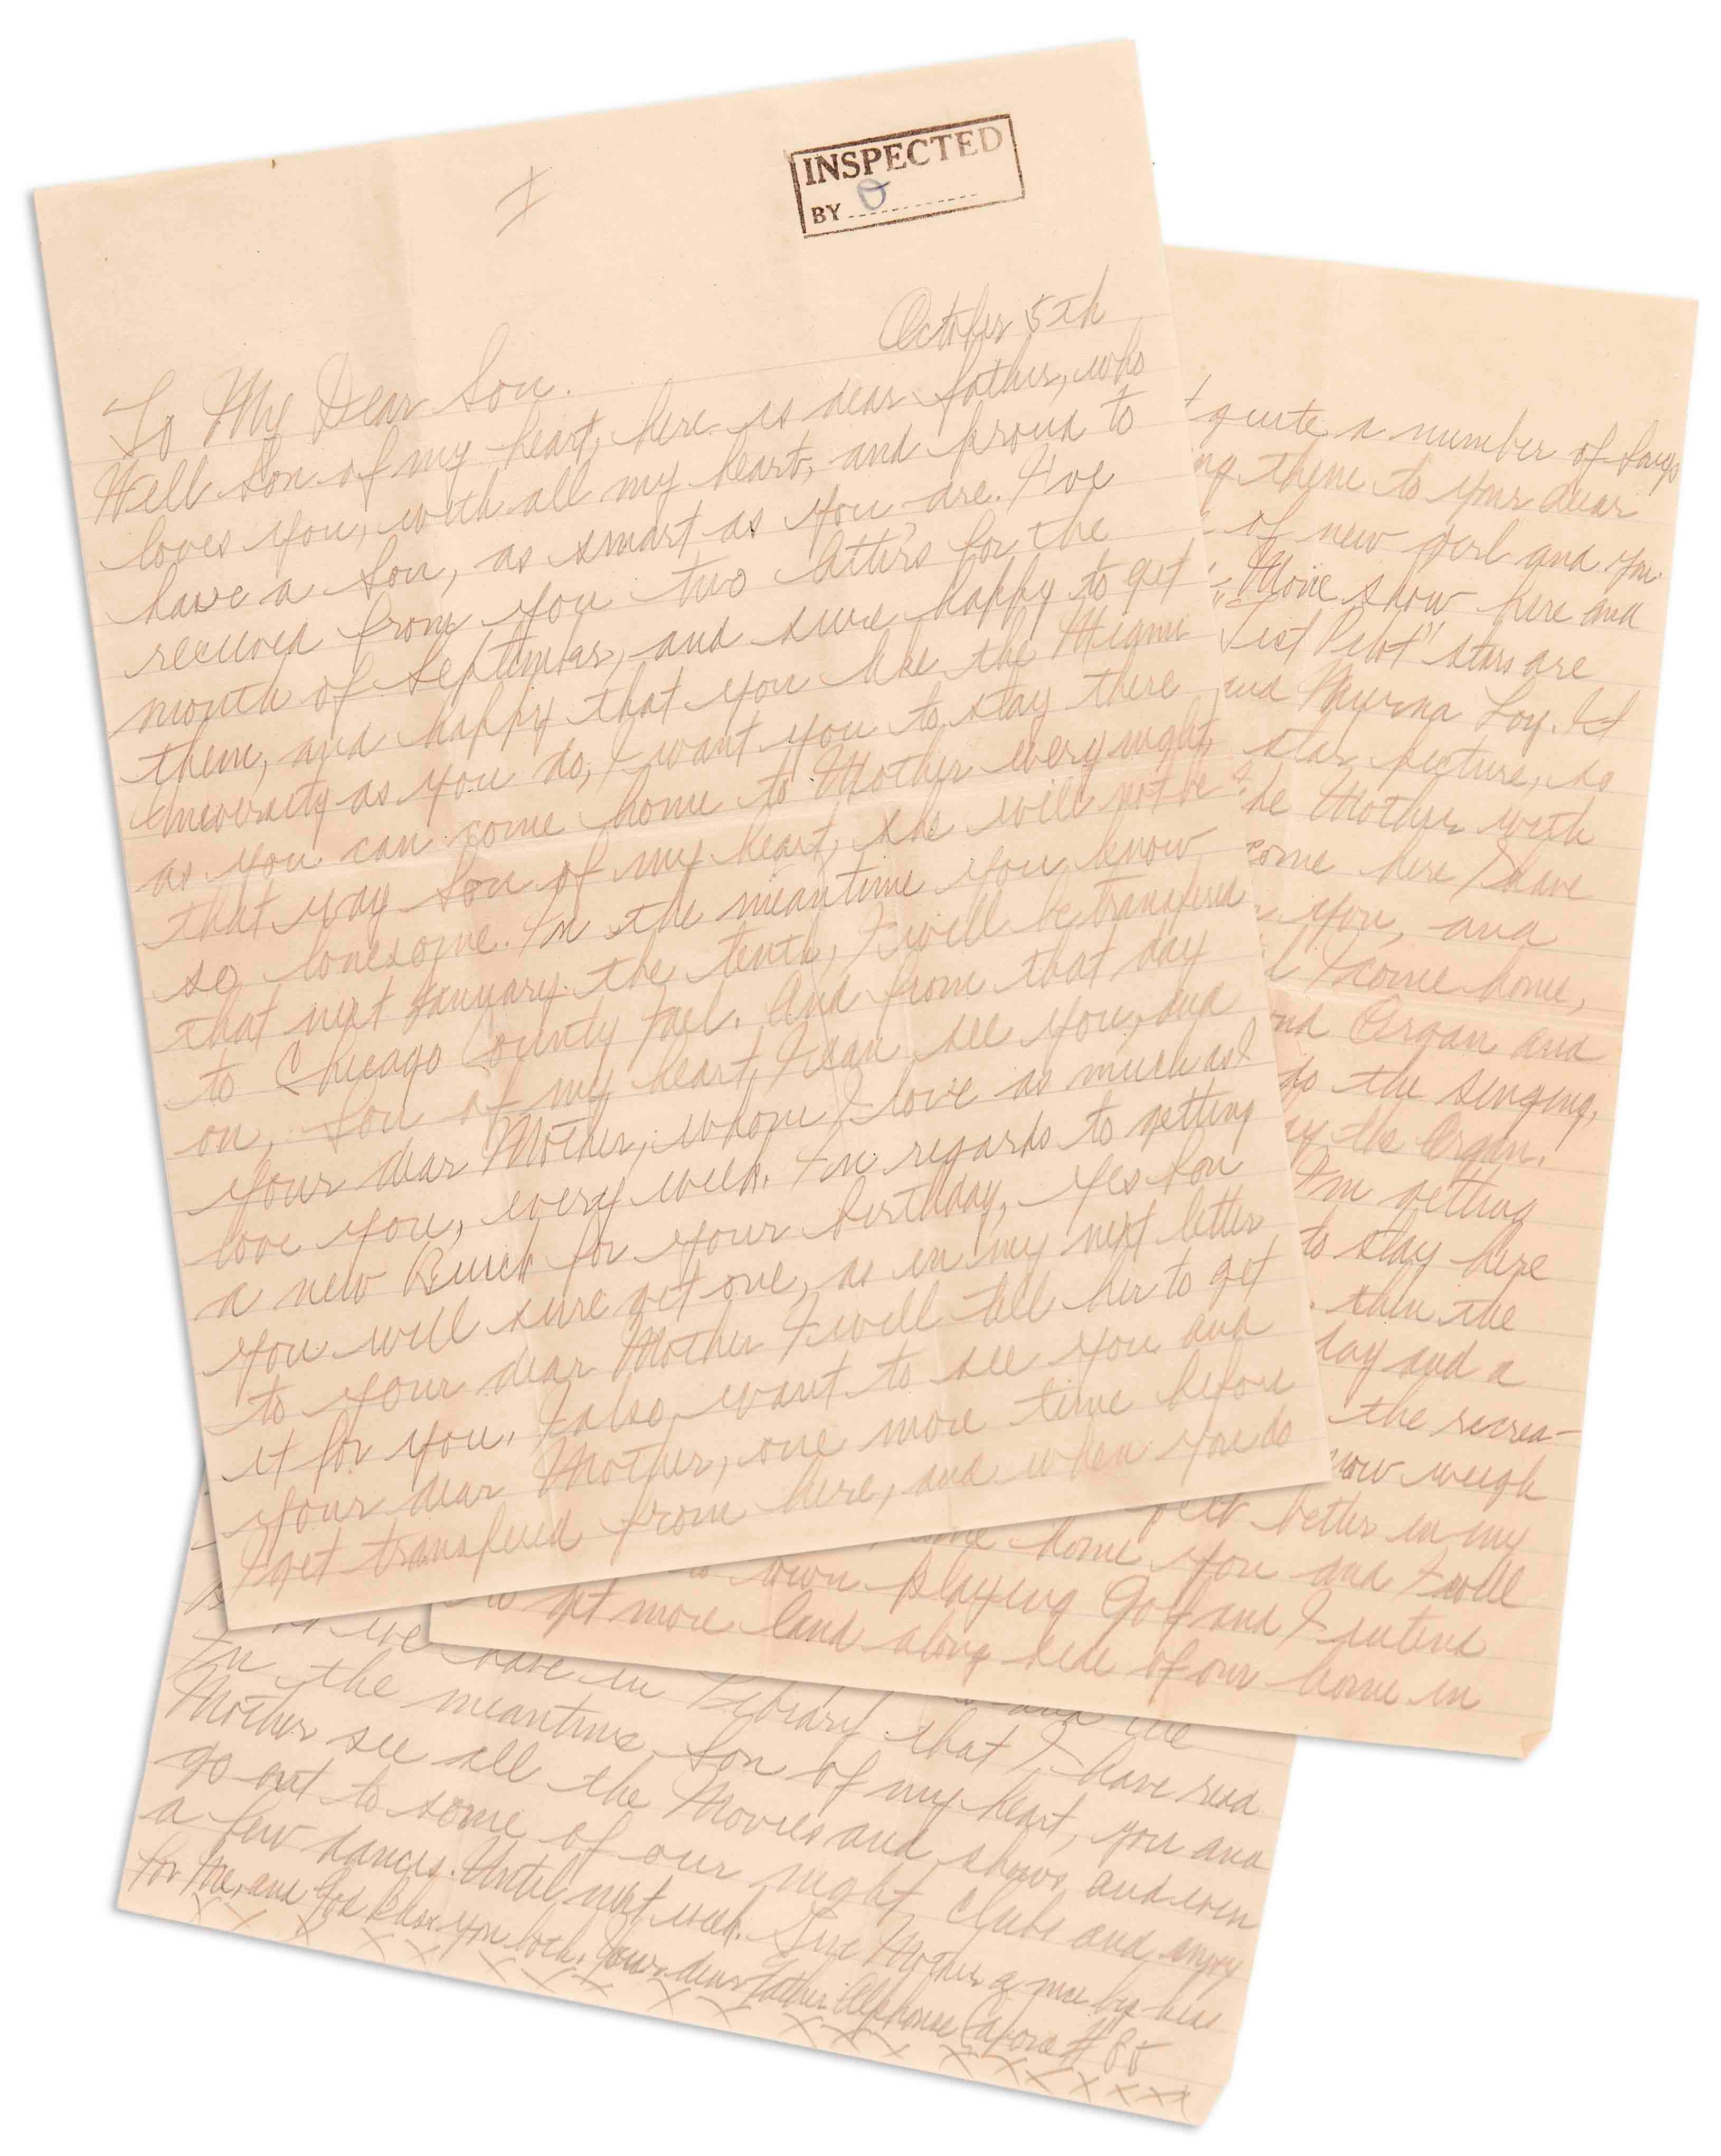 INSPECTED
BY
October 5th
To My Dear Son.
Well Son of my heart, here is dear father, who
loves you, with all my heart, and proud to
have a Son, as smart as you are. I've
received from you two letters for the
month of September, and sure happy to get
them, and happy that you like the Miami
University as you do, I want you to stay there
as you can come home to Mother every night,
that way Son of my heart, she will not be
so lonesome. In the meantime you know
that next January the tenth, I will be transferd
to Chicago County Jael. And from that day
on, Son of my heart, I can see you, and
your dear Mother, whom I love as much as I
love you, every week. In regards to getting
a new Buick for your birthday, Yes Son
you will sure get one, as in my next letter
to your dear Mother I will tell her to get
it for you. I also want to see you and
your dear Mother, one more time before
I get transfered from here, and when you do
quite a number of Songs
ng them to your dear
of new girl and you
"Movie show here and
Test Pilot" stars are
and Myrna Loy. It
star picture, so
Mother with
come here I have
you, and
I come home,
Organ and
do the singing,
the Organ.
I'm getting
to stay here
then the
day and a
the recrea-
now weigh
felt better in my
home you and I will
own playing Golf and I intend
to get more land along side of our home in
we have in Library that I have read
In the meantime, Son of my heart, you and
Mother see all the Movies and shows, and even
go out to some of our night clubs and enjoy
a few dances. Until next week. Give Mother a nice big kiss
for Me, and God Bless you both. Your dear father Alphonse Capone #85
X X X X X X X X X X X X X X X X X X X X